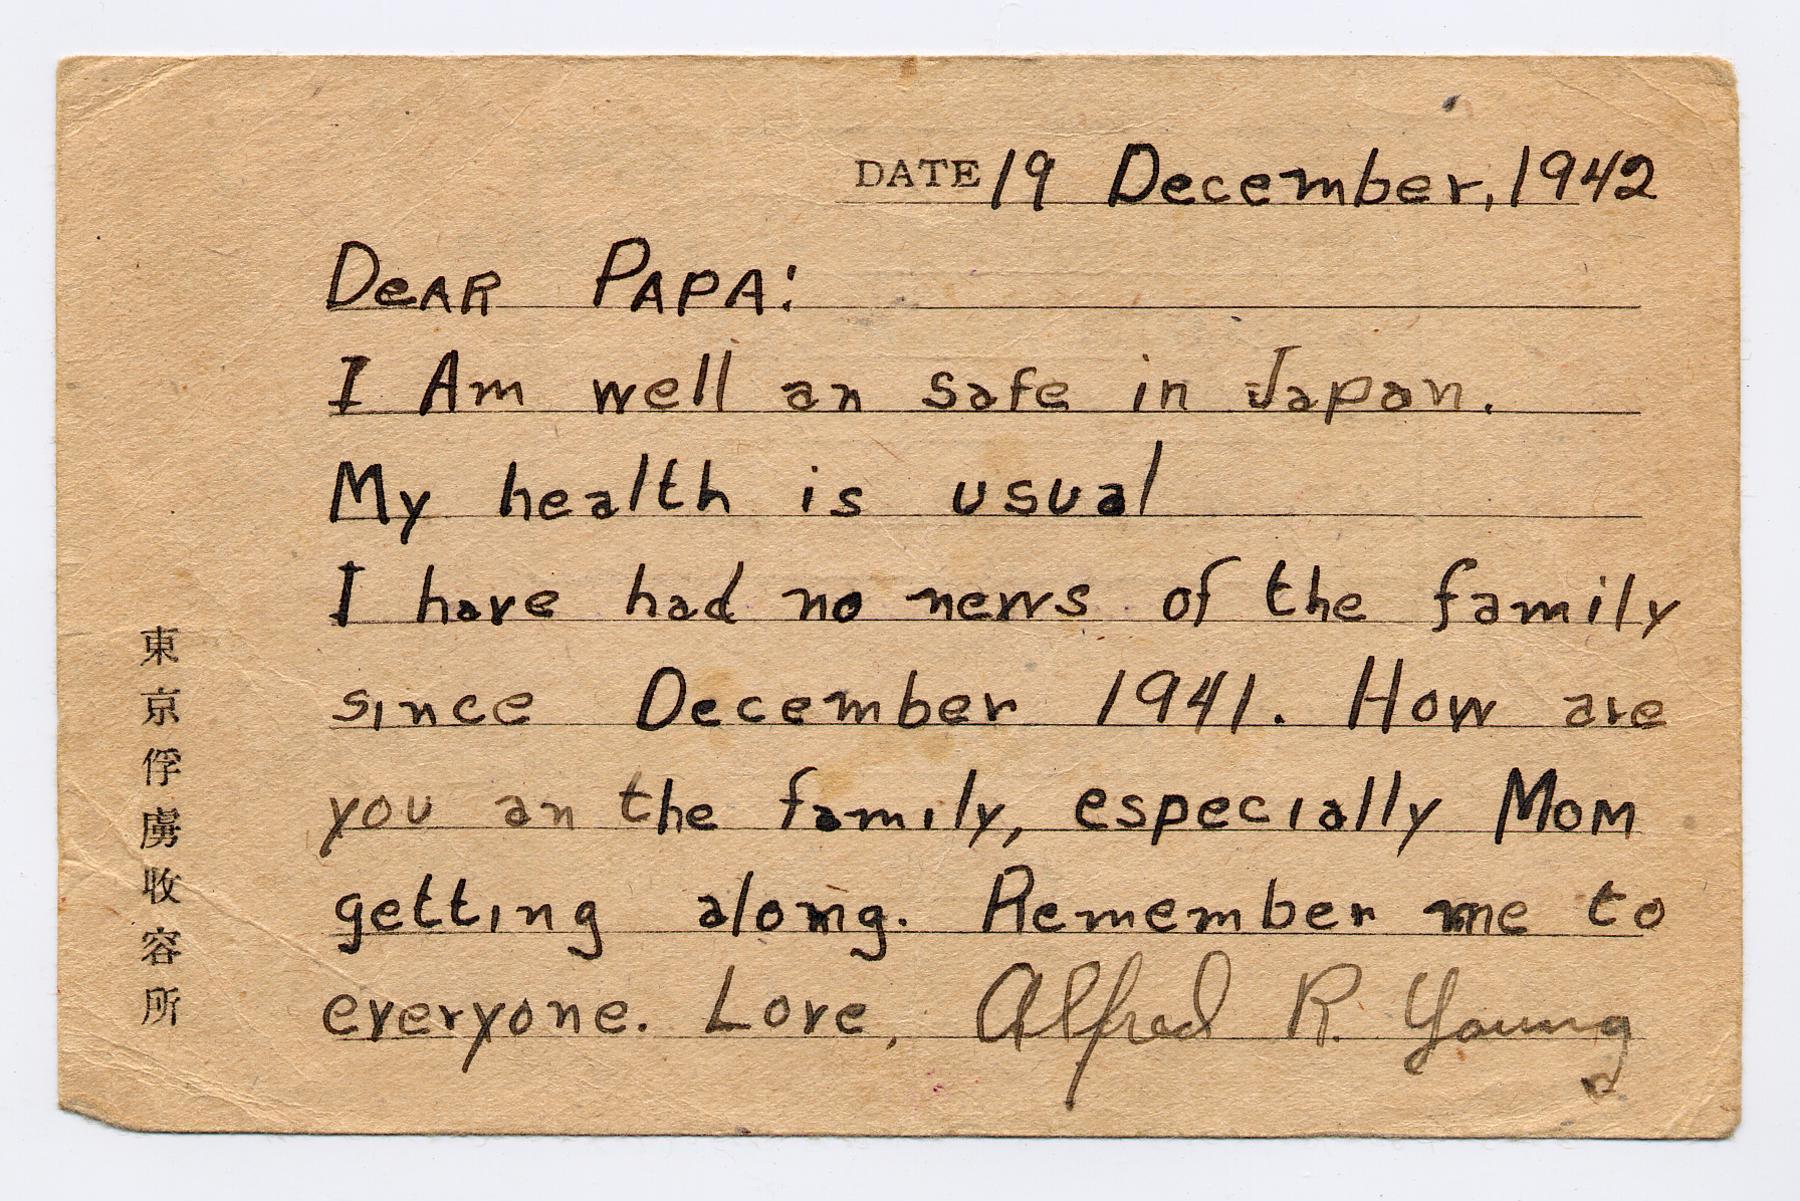 DATE 19 December, 1942
DeAR PAPA:
I Am well an safe in Japan.
My health is usual
I have had no news of the family
since December 1941. How are
you an the family, especially Mom
getting along. Remember me to
everyone. Love, Alfred R. Young
東京俘虜收容所